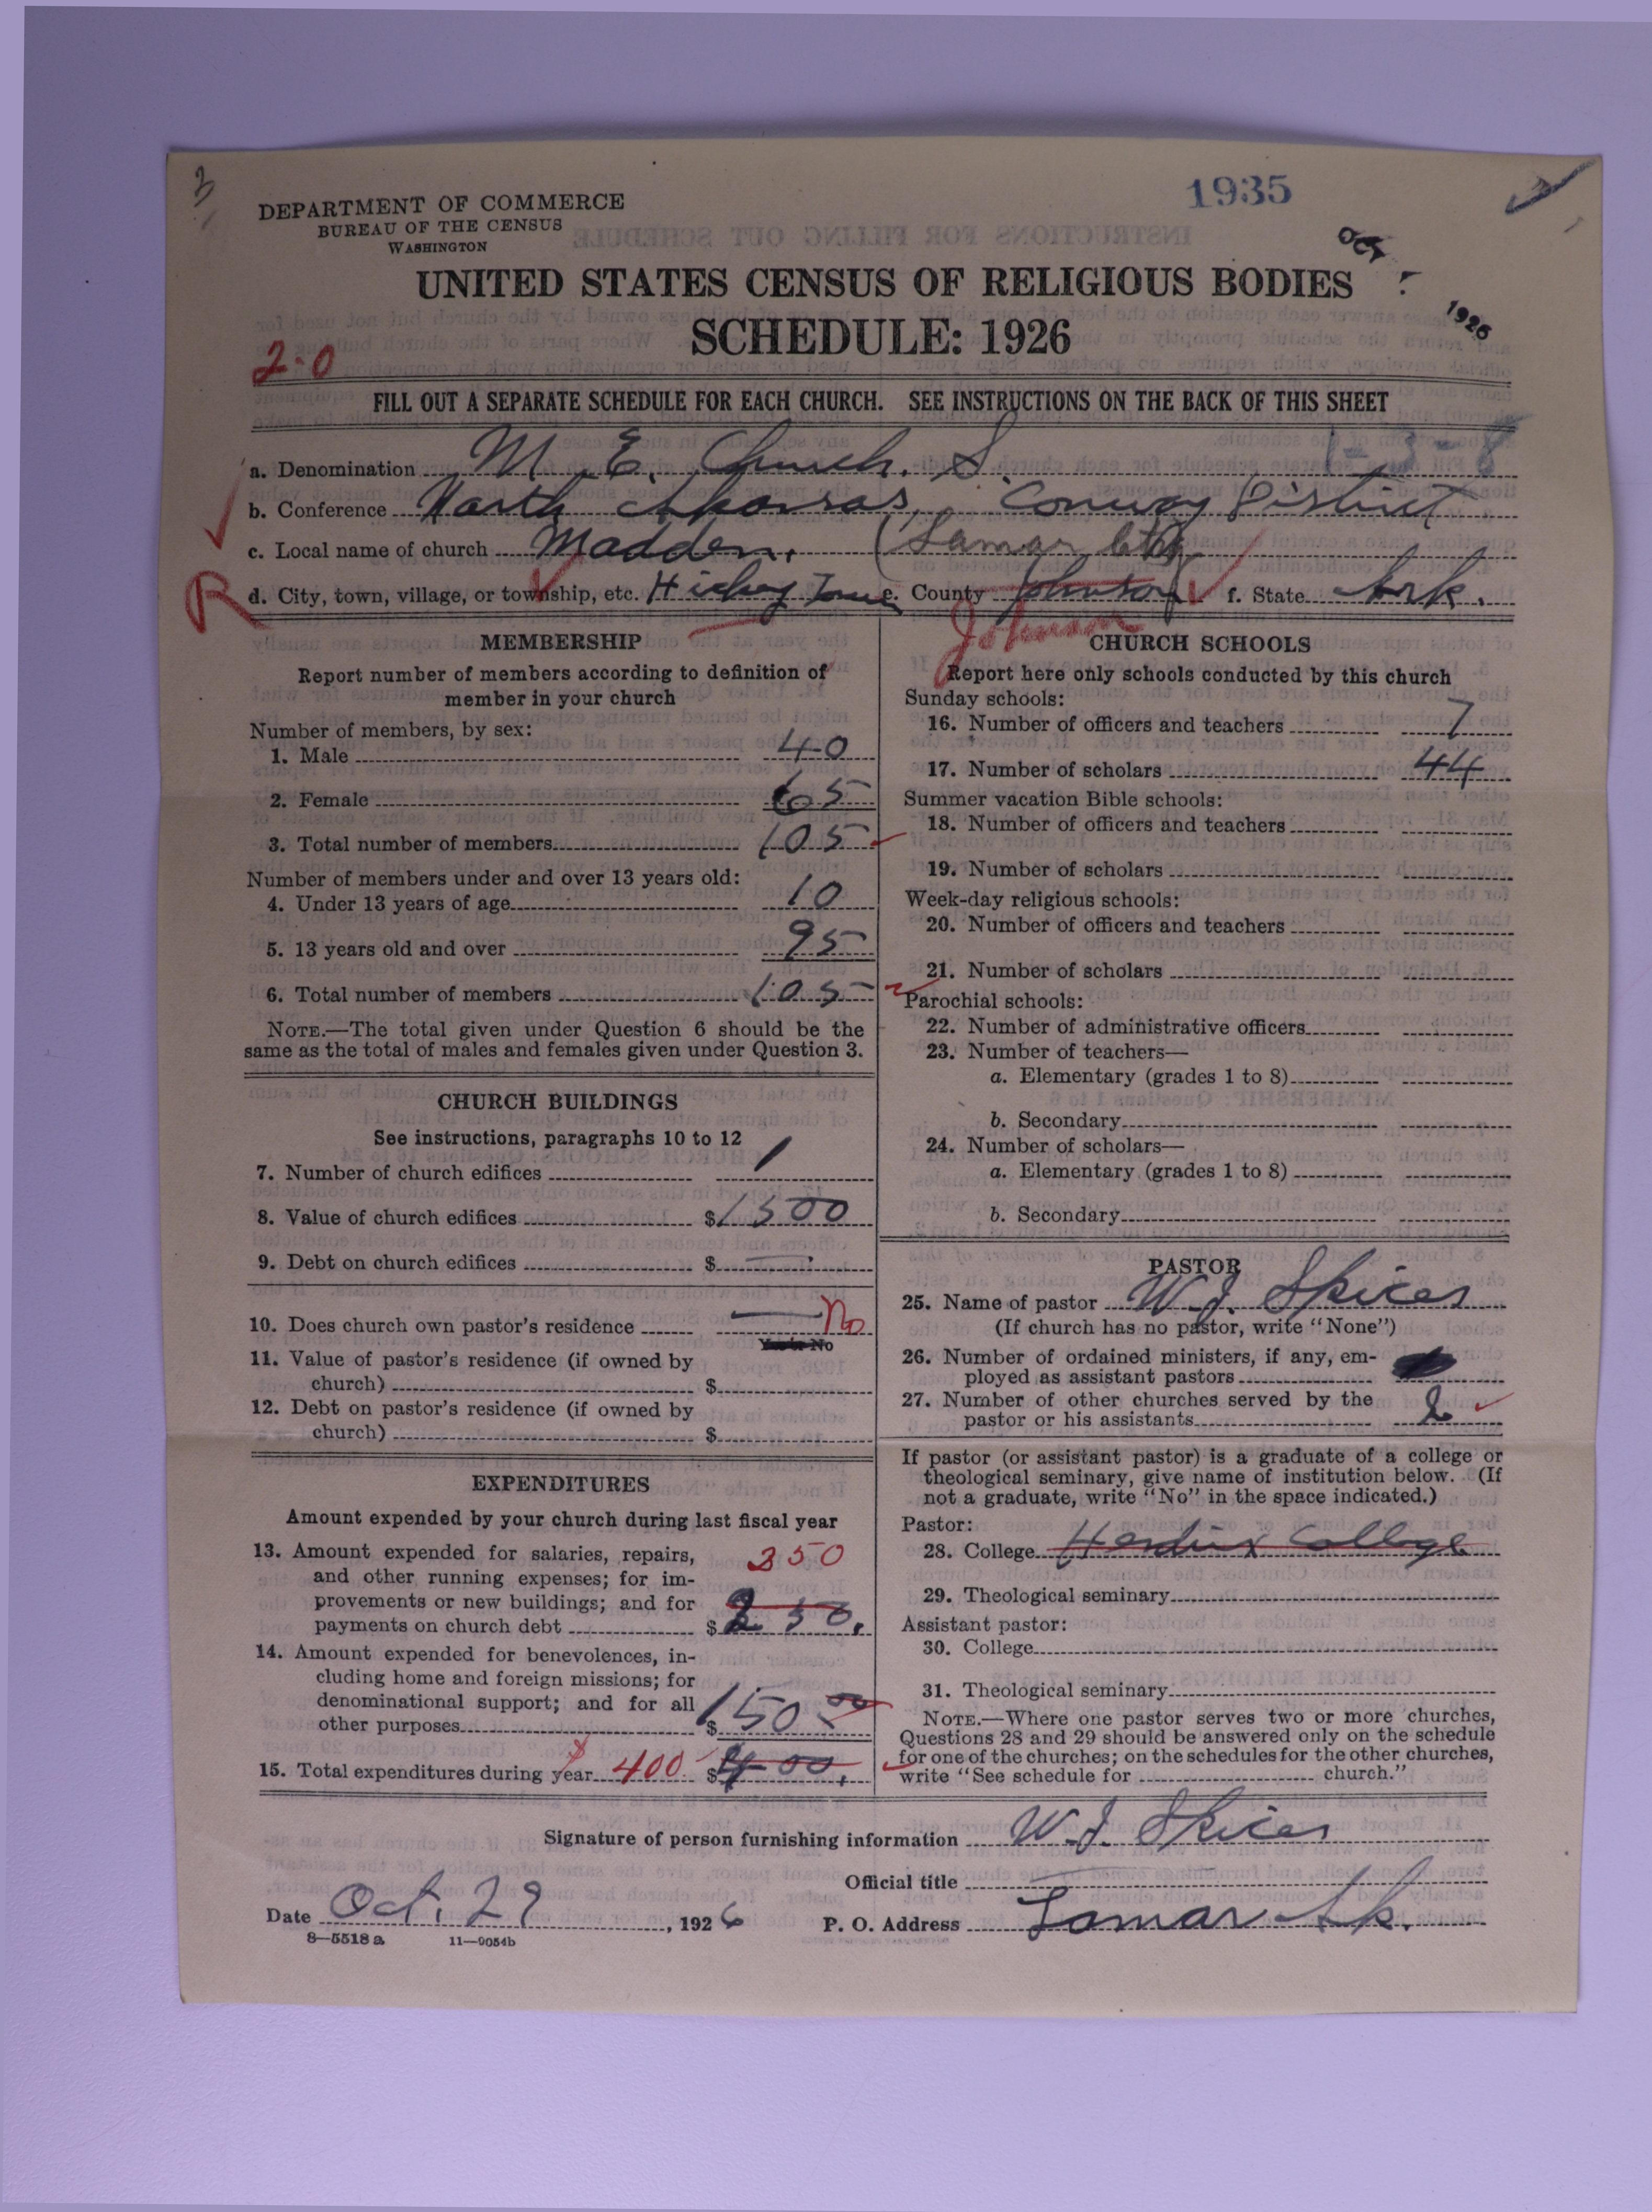 DEPARTMENT OF COMMERCE
BUREAU OF THE CENSUS
WASHINGTON
1935
OCT
1926
UNITED STATES CENSUS OF RELIGIOUS BODIES
SCHEDULE: 1926
2-0
FILL OUT A SEPARATE SCHEDULE FOR EACH CHURCH. SEE INSTRUCTIONS ON THE BACK OF THIS SHEET
a. Denomination M. E. Church. S. 1-3-8
b. Conference North Arkansas, Conway District
c. Local name of church Madden. (Lamar
R
d. City, town, village, or township, etc. e. County Johnson f. State Ark.
Johnson
MEMBERSHIP
Report number of members according to definition of
member in your church
Number of members, by sex:
1. Male 40
2. Female 65
3. Total number of members 105
Number of members under and over 13 years old:
4. Under 13 years of age 10
5. 13 years old and over 95
6. Total number of members 105
NOTE.—The total given under Question 6 should be the
same as the total of males and females given under Question 3.
CHURCH BUILDINGS
See instructions, paragraphs 10 to 12
7. Number of church edifices 1
8. Value of church edifices $1500
9. Debt on church edifices $ —
10. Does church own pastor's residence — No
Yes or No
11. Value of pastor's residence (if owned by
church) $
12. Debt on pastor's residence (if owned by
church) $
EXPENDITURES
Amount expended by your church during last fiscal year
13. Amount expended for salaries, repairs, 250
and other running expenses; for im-
provements or new buildings; and for
payments on church debt $ 250.
14. Amount expended for benevolences, in-
cluding home and foreign missions; for
denominational support; and for all
other purposes $150 00
15. Total expenditures during year 400 $400.
CHURCH SCHOOLS
Report here only schools conducted by this church
Sunday schools:
16. Number of officers and teachers 7
17. Number of scholars 44
Summer vacation Bible schools:
18. Number of officers and teachers
19. Number of scholars
Week-day religious schools:
20. Number of officers and teachers
21. Number of scholars
Parochial schools:
22. Number of administrative officers
23. Number of teachers—
a. Elementary (grades 1 to 8)
b. Secondary
24. Number of scholars—
a. Elementary (grades 1 to 8)
b. Secondary
PASTOR
25. Name of pastor W. J. Spicer
(If church has no pastor, write "None")
26. Number of ordained ministers, if any, em-
ployed as assistant pastors
27. Number of other churches served by the
pastor or his assistants 2
If pastor (or assistant pastor) is a graduate of a college or
theological seminary, give name of institution below. (If
not a graduate, write "No" in the space indicated.)
Pastor:
28. College Hendrix College
29. Theological seminary
Assistant pastor:
30. College
31. Theological seminary
NOTE.—Where one pastor serves two or more churches,
Questions 28 and 29 should be answered only on the schedule
for one of the churches; on the schedules for the other churches,
write "See schedule for church."
Signature of person furnishing information W. J. Spicer
Official title
Date Oct. 29, 1926 P. O. Address Lamar Ark.
8—5518 a 11—9054b